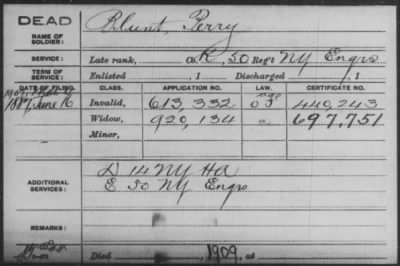 DEAD
NAME OF SOLDIER: Blunt, Perry
SERVICE: Late rank, Co. K, 50 Reg't NY Engrs
TERM OF SERVICE: Enlisted , 1 Discharged , 1
DATE OF FILING. CLASS. APPLICATION NO. LAW. CERTIFICATE NO.
Invalid, 613,332 440,243
June 16 Widow, 920,134 697,751
Minor,
ADDITIONAL SERVICES: D 14 NY HA
E 50 NY Engrs
REMARKS:
Died , 1909, at